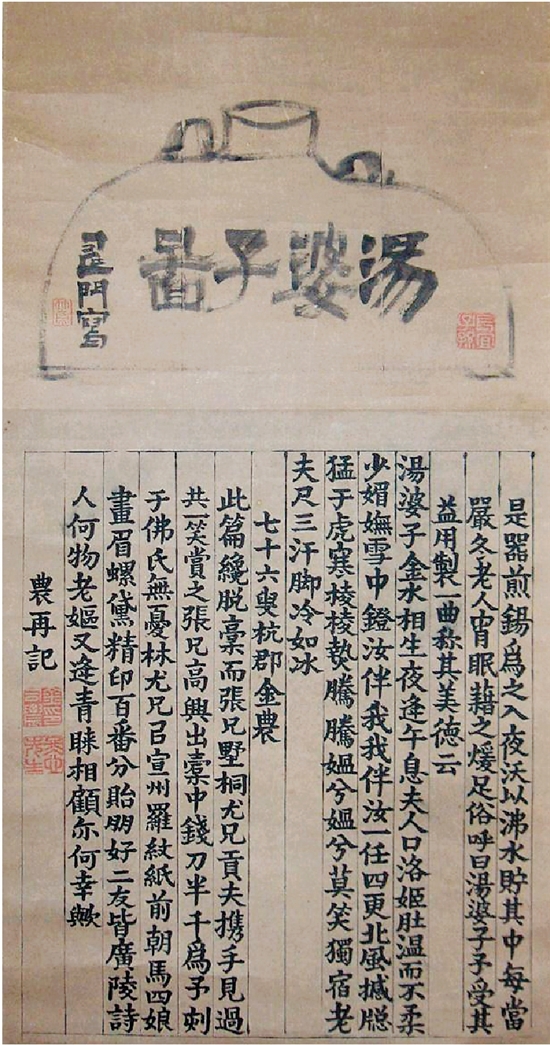 湯婆子啚
壽門寫
長宜子孫
是器煎錫爲之入夜沃以沸水貯其中每當
嚴冬老人甯眠藉之煖足俗呼曰湯婆子予受其
益用製一曲称其美德云
湯婆子金水相生夜逢午息夫人口洛姬肚温而不柔
少媚嫵雪中鐙汝伴我我伴汝一任四更北風撼牕
猛于虎寒棱棱熱騰騰媼兮媼兮莫笑獨宿老
夫尺三汗脚冷如冰
七十六叟杭郡金農
此篇纔脱稾而張兄墅桐尤兄貢夫携手見過
共一笑賞之張兄高興出橐中錢刀半千爲予刻
于佛氏無憂林尤兄召宣州羅紋紙前朝馬四娘
畫眉螺黛精印百番分貽朋好二友皆廣陵詩
人何物老嫗又逢青睞相顧亦何幸歟
農再記